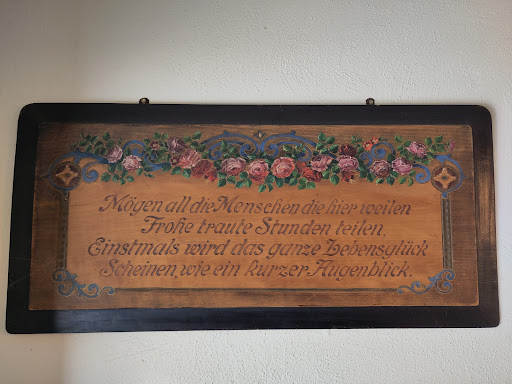 Mögen all die Menschen die hier weilen
Frohe traute Stunden teilen,
Einstmals wird das ganze Lebensglück
Scheinen, wie ein kurzer Augenblick.